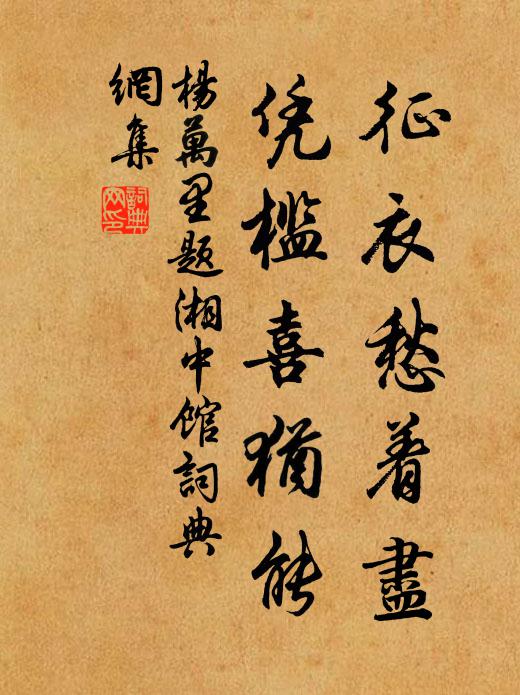 征衣愁着盡
凭檻喜猶能
楊萬里題湘中館詞典
網集
詞典
网印